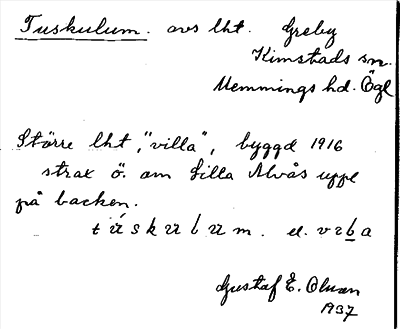 Tuskulum. avs lht. Greby
Kimstads sn.
Memmings hd. Ögl
Större lht, "villa", byggd 1916
strax ö. om Lilla Alvås uppe
på backen.
túskulum. el. villa
Gustaf E. Olman
1937